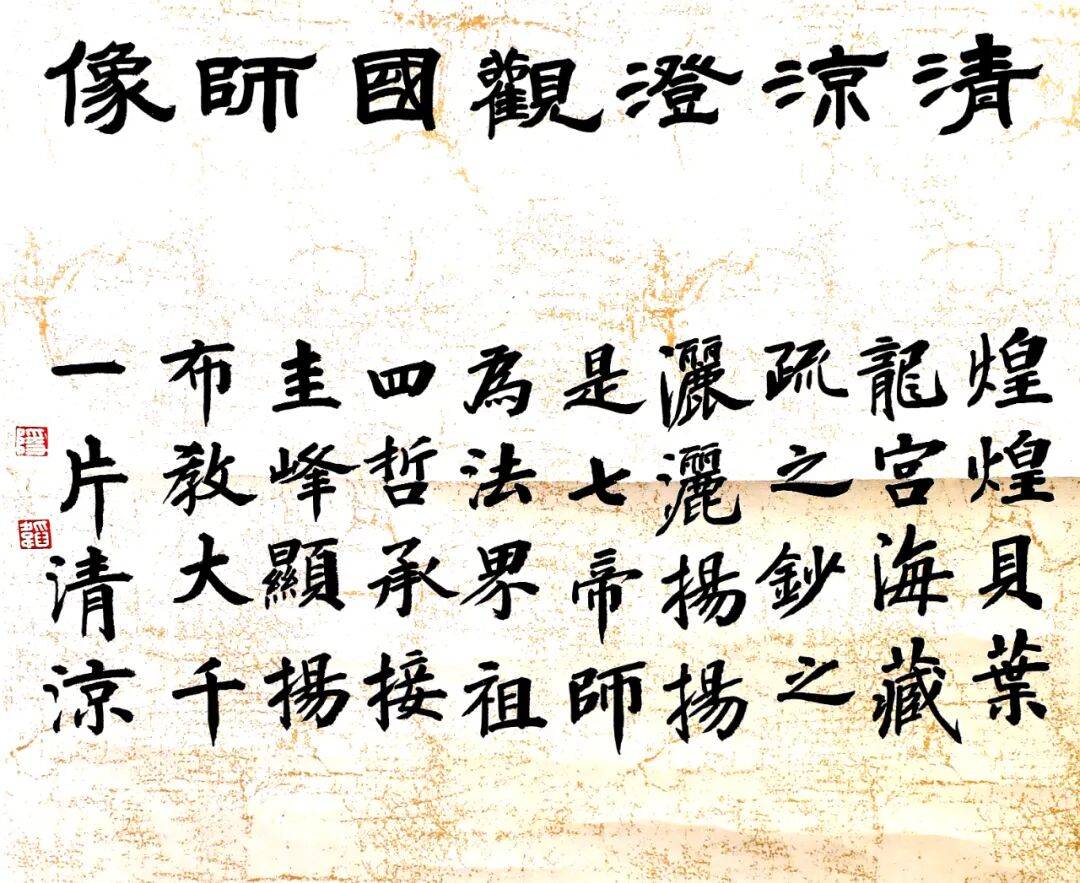 清涼澄觀國師像
煌煌貝葉
龍宮海藏
疏之鈔之
灑灑揚揚
是七帝師
為法界祖
四哲承接
圭峰顯揚
布教大千
一片清涼